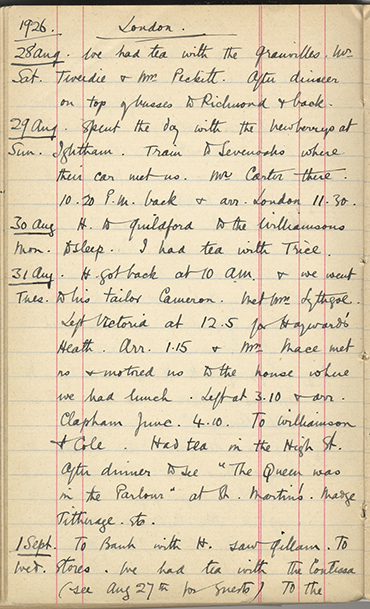 1926. London.
28 Aug. We had tea with the Granvilles. Mr
Sat. Tweedie & Mr Peckett. After dinner
on top of busses to Richmond & back.
29 Aug. Spent the day with the Newberrys at
Sun. Ightham. Train to Sevenoaks where
their car met us. Mr Carter there.
10.20 P.M. back & arr. London 11.30.
30 Aug H. to Guildford to the Williamsons
Mon. to sleep. I had tea with Trice.
31 Aug. H got back at 10 A.M. & we went
Tues. to his tailor Cameron. Met Mrs Lythgoe.
Left Victoria at 12.5 for Haywards
Heath. Arr. 1.15 & Mr. Mace met
us & motored us to the house where
we had lunch. Left at 3.10 & arr.
Clapham Junc. 4.10. To Williamson
& Cole. Had tea in the High St.
After dinner to see "The Queen was
in the Parlour" at St. Martin's. Madge
Titherage. &c.
1 Sept. To Bank with H. saw Gillam. To
Wed. Stores. We had tea with the Contessa
(see Aug 27th for guests) To the